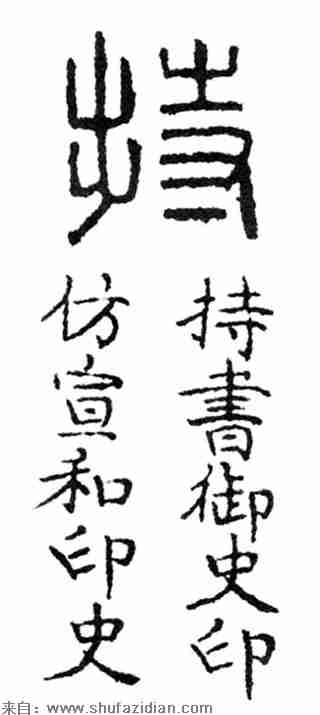 持
持書御史印
仿宣和印史
来自：www.shufazidian.com